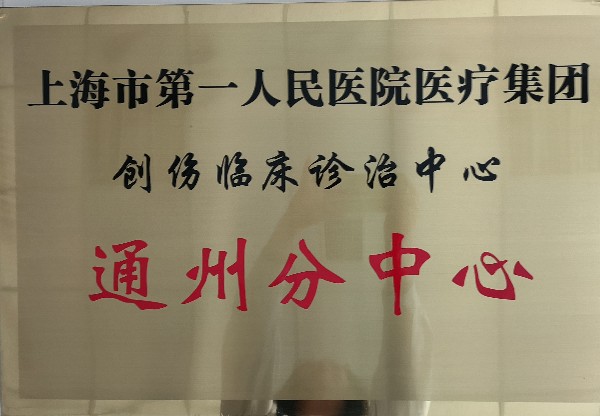 上海市第一人民医院医疗集团
创伤临床诊治中心
通州分中心